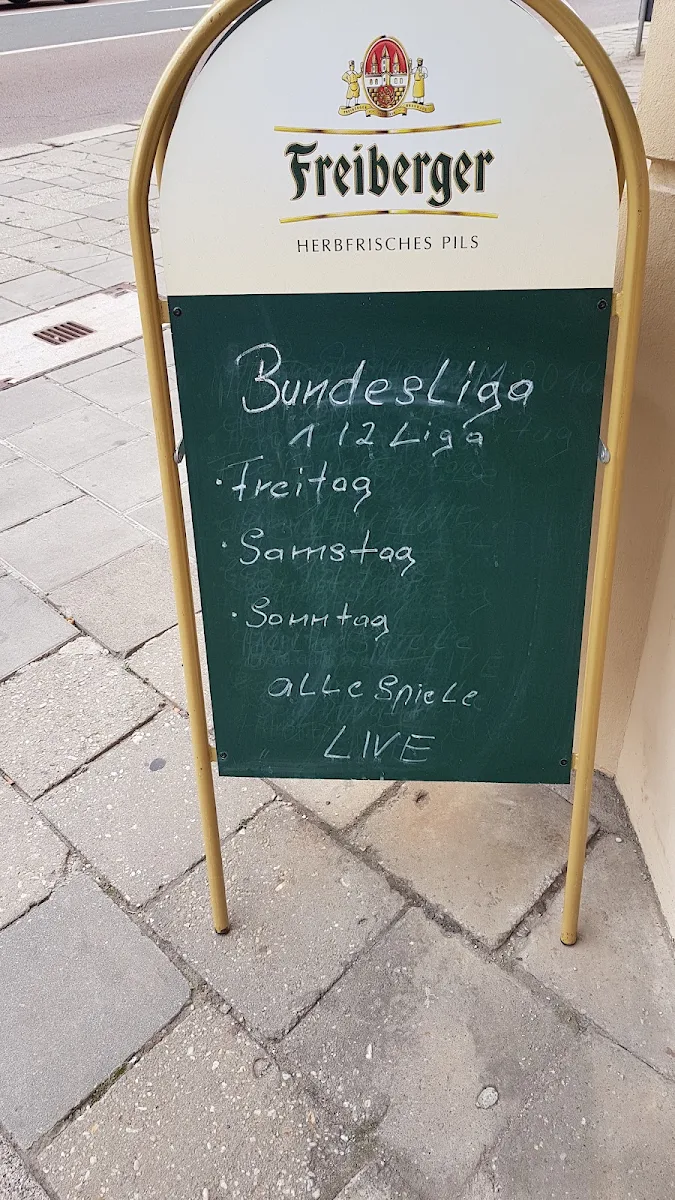 Freiberger
HERBFRISCHES PILS
BundesLiga
1 / 2 Liga
• Freitag
• Samstag
• Sonntag
aLLe Spiele
LIVE